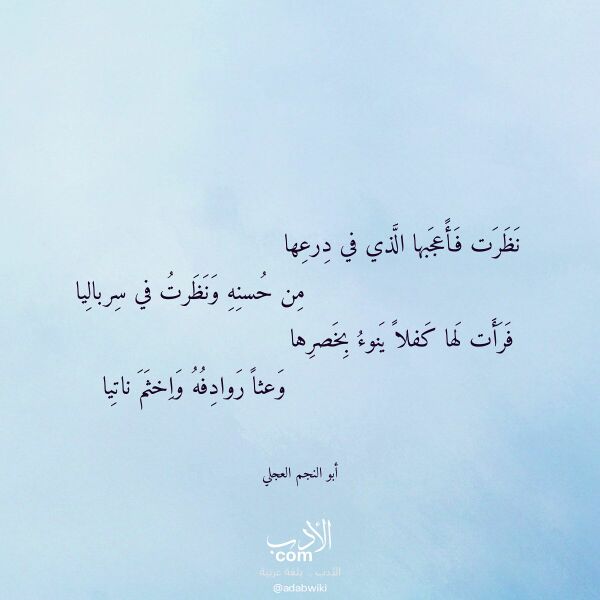 نَظَرَت فَأَعجَبَها الَّذي في دِرعِها
مِن حُسنِهِ وَنَظَرتُ في سِربالِيا
فَرَأَت لَها كَفلاً يَنوءُ بِخَصرِها
وَعثاً رَوادِفُهُ وَاِخثَمَ ناتِيا
أبو النجم العجلي
الأدب
com
الأدب .. بلغة عربية
@adabwiki